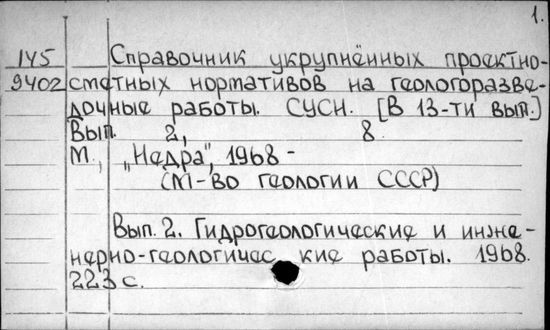 1.
145 Справочник укрупнённых проектно-
9402 сметных нормативов на геологоразве-
дочные работы. СУСН. [В 13-ти вып.]
Вып. 2, 8
М., „Недра", 1968 -
(М-во геологии СССР)
Вып. 2. Гидрогеологические и инже-
нерно-геологичес кие работы. 1968.
223 с.